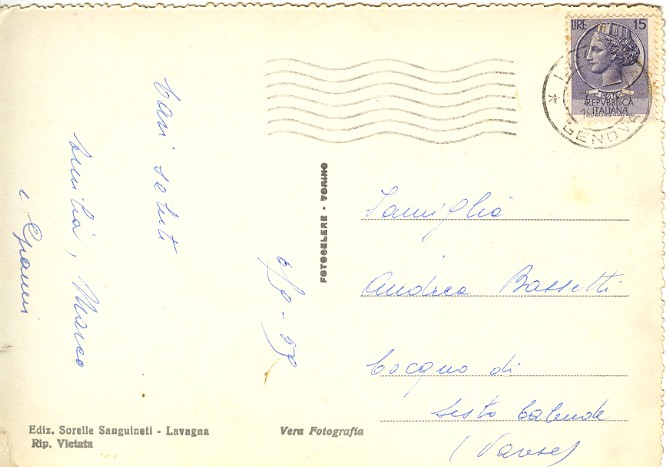 LIRE 15
REPVBBLICA
ITALIANA
GENOVA
Cari saluti
Emilia, Marco
e Gianni
6/8-59
FOTOCELERE - TORINO
Famiglia
Andrea Bassetti
Cocquo di
Sesto Calende
(Varese)
Ediz. Sorelle Sanguineti - Lavagna
Rip. Vietata
Vera Fotografia